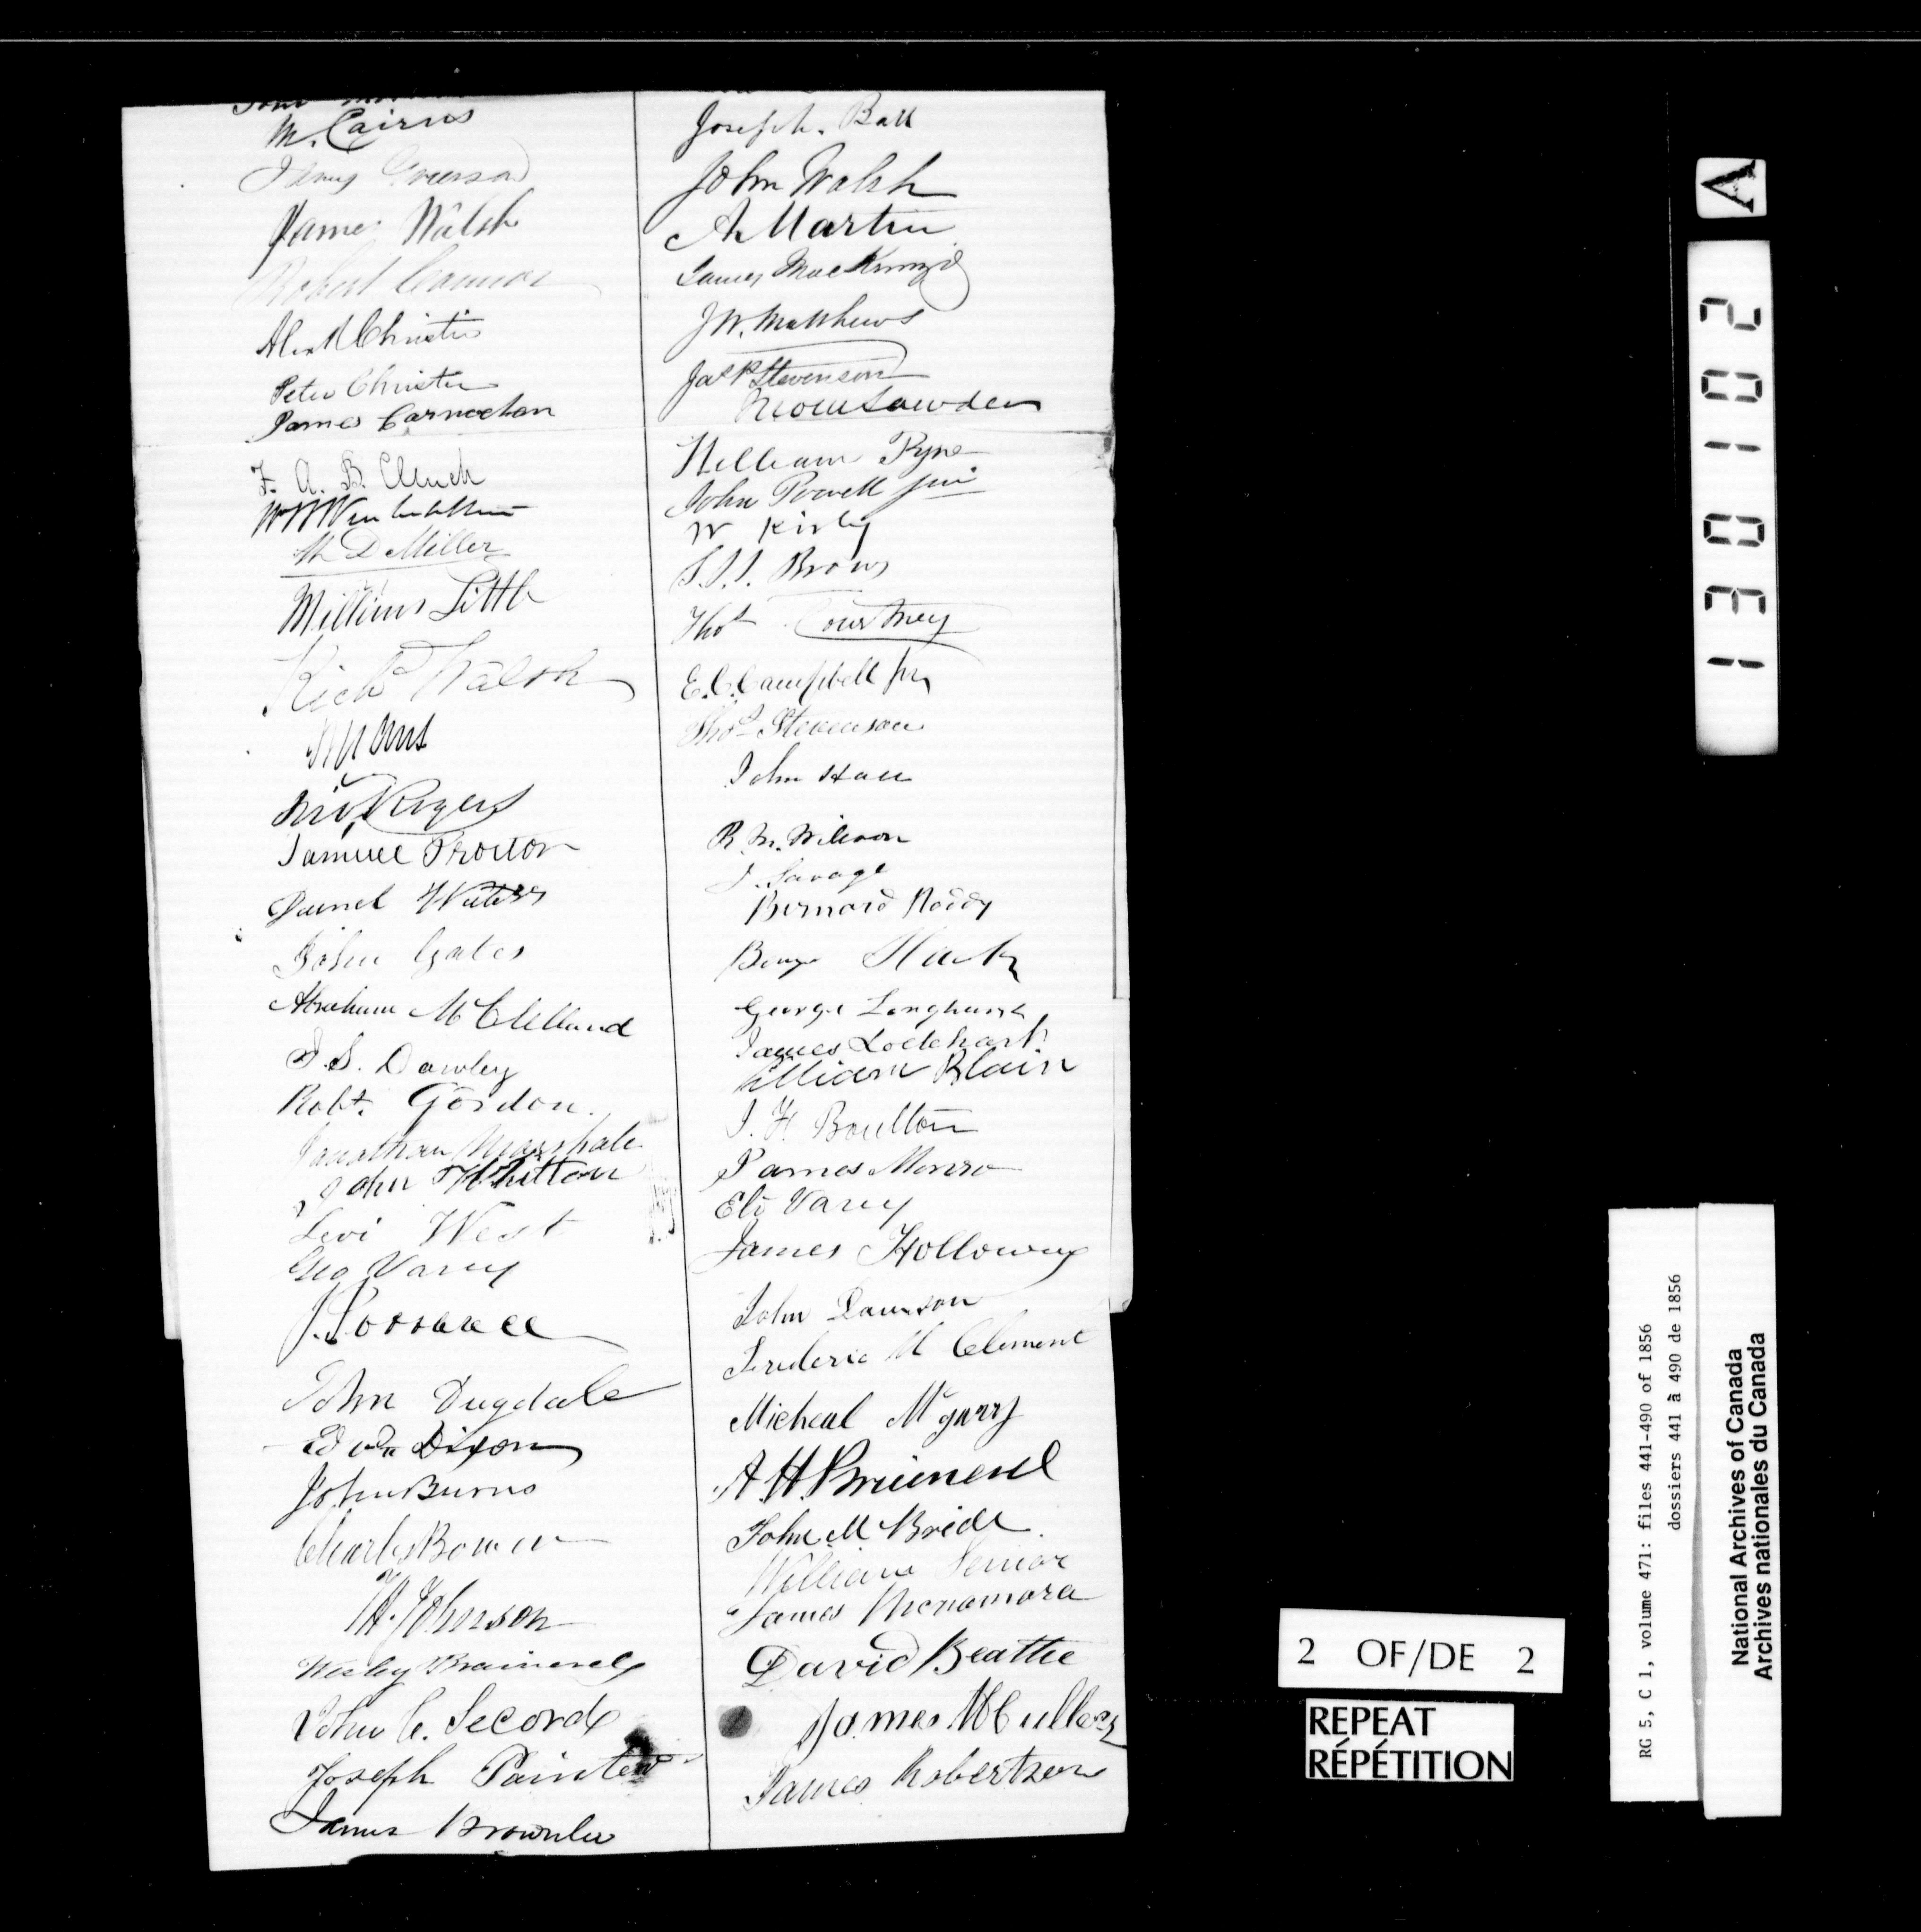 M. Cairns
James
James Walsh
Robert Connor
Alexr Christie
Peter Christie
James Carnochan
F. A. B. Clench
D Miller
William Little
Richd Walsh
Rogers
Samuel Proctor
Daniel Waters
John Gates
Abraham McClelland
J. S. Dawley
Robt. Gordon.
Jonathan Marshale
John Whitten
Levi West
Geo Varey
J. Lorrance
John Dugdale
Edwn Dixon
John Burns
Charles Bowen
Johnson
Wesley Brainerd
John C. Secord
Joseph Painter
James Brownlee
Joseph. Ball
John Walsh
A Martin
James MacKenzie
J W. Matthews
Jas P Stevenson
Lowden
William Pyne
John Powell Jun
W Kirby
S. J. J. Brown
Thos Courtney
E. C. Campbell Jr
Thos Stevenson
John Hall
R. M. Wilson
J. Savage
Bernard Roddy
Benj
George Longhurst
James Lockhart
William Blain
J. H. Boulton
James Monro
Eli Varey
James Holloway
John Dawson
Frederic M Clement
Micheal McGarry
A. H. Brainerd
John McBride.
William Senior
James Mcnamara
David Beattie
James McCullery
James Robertson
A
201031
2 OF/DE 2
REPEAT
RÉPÉTITION
RG 5, C 1, volume 471: files 441-490 of 1856
dossiers 441 à 490 de 1856
National Archives of Canada
Archives nationales du Canada